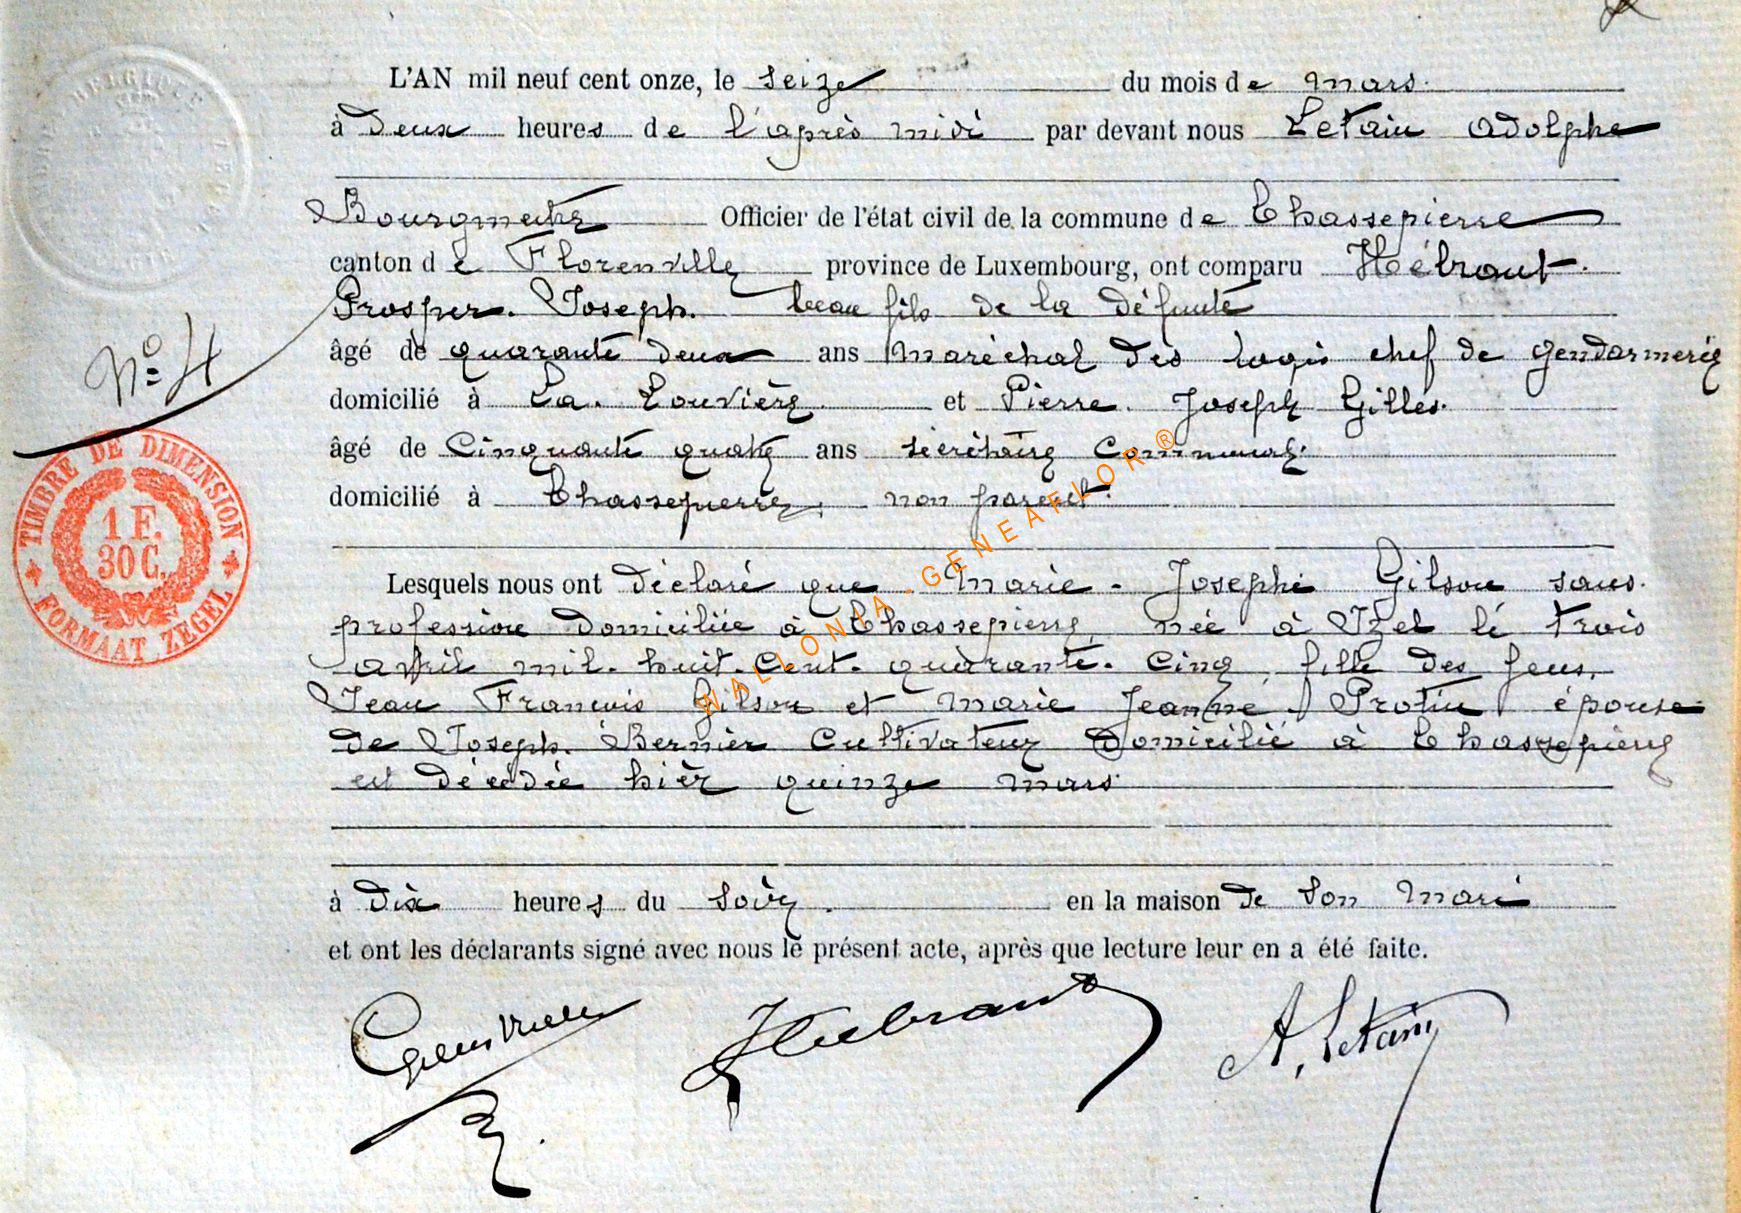 L'AN mil neuf cent onze, le seize du mois de mars.
à deux heures de l'après midi par devant nous Letain Adolphe
Bourgmestre Officier de l'état civil de la commune de Chassepierre
canton de Florenville province de Luxembourg, ont comparu Hébrant.
Prosper. Joseph. beau fils de la défunte
N° 4
âgé de quarante deux ans Maréchal des logis chef de gendarmerie
domicilié à La. Louvière. et Pierre. Joseph Gilles.
âgé de Cinquante quatre ans secrétaire Communal.
domicilié à Chassepierre, non parent.
Lesquels nous ont déclaré que Marie - Josephe Gilson sans.
profession domiciliée à Chassepierre, née à Izel le trois
avril mil. huit. Cent. quarante. Cinq, fille des feus.
Jean François Gilson et Marie Jeanne Protin épouse
de Joseph. Bernier Cultivateur Domicilié à Chassepierre
est décédée hier quinze mars.
à dix heures du soir. en la maison de son mari
et ont les déclarants signé avec nous le présent acte, après que lecture leur en a été faite.
Hébrant
A. Letain
TIMBRE DE DIMENSION
1 F.
30 C.
FORMAAT ZEGEL
BELGIQUE
WALLONIA - GENEAFLOR ®